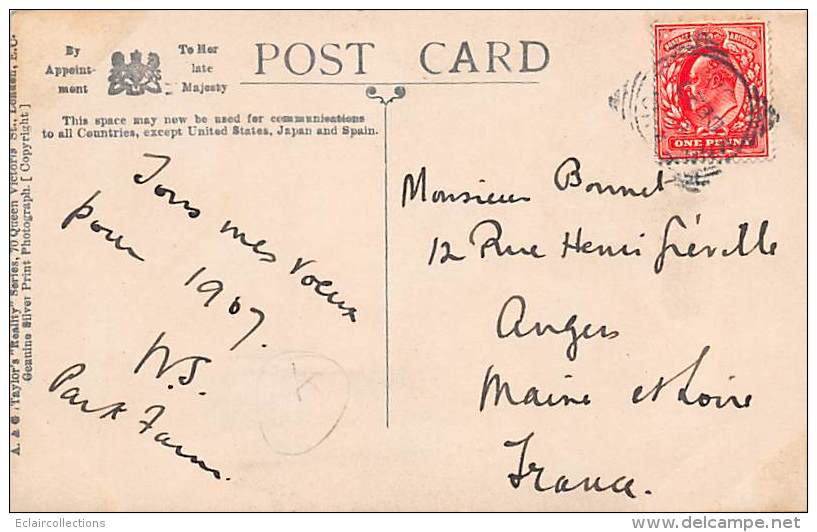 By
Appoint-
ment
To Her
late
Majesty
POST CARD
This space may now be used for communications
to all Countries, except United States, Japan and Spain.
A. & G. Taylor's "Reality" Series, 70 Queen Victoria St., London, E.C.
Genuine Silver Print Photograph. [Copyright]
POSTAGE & REVENUE
ONE PENNY
Tous mes voeux
pour 1907.
W.S.
Park Farm.
Monsieur Bonnet
12 Rue Henri Gréville
Angers
Maine et Loire
France.
Eclaircollections
delcampe.net